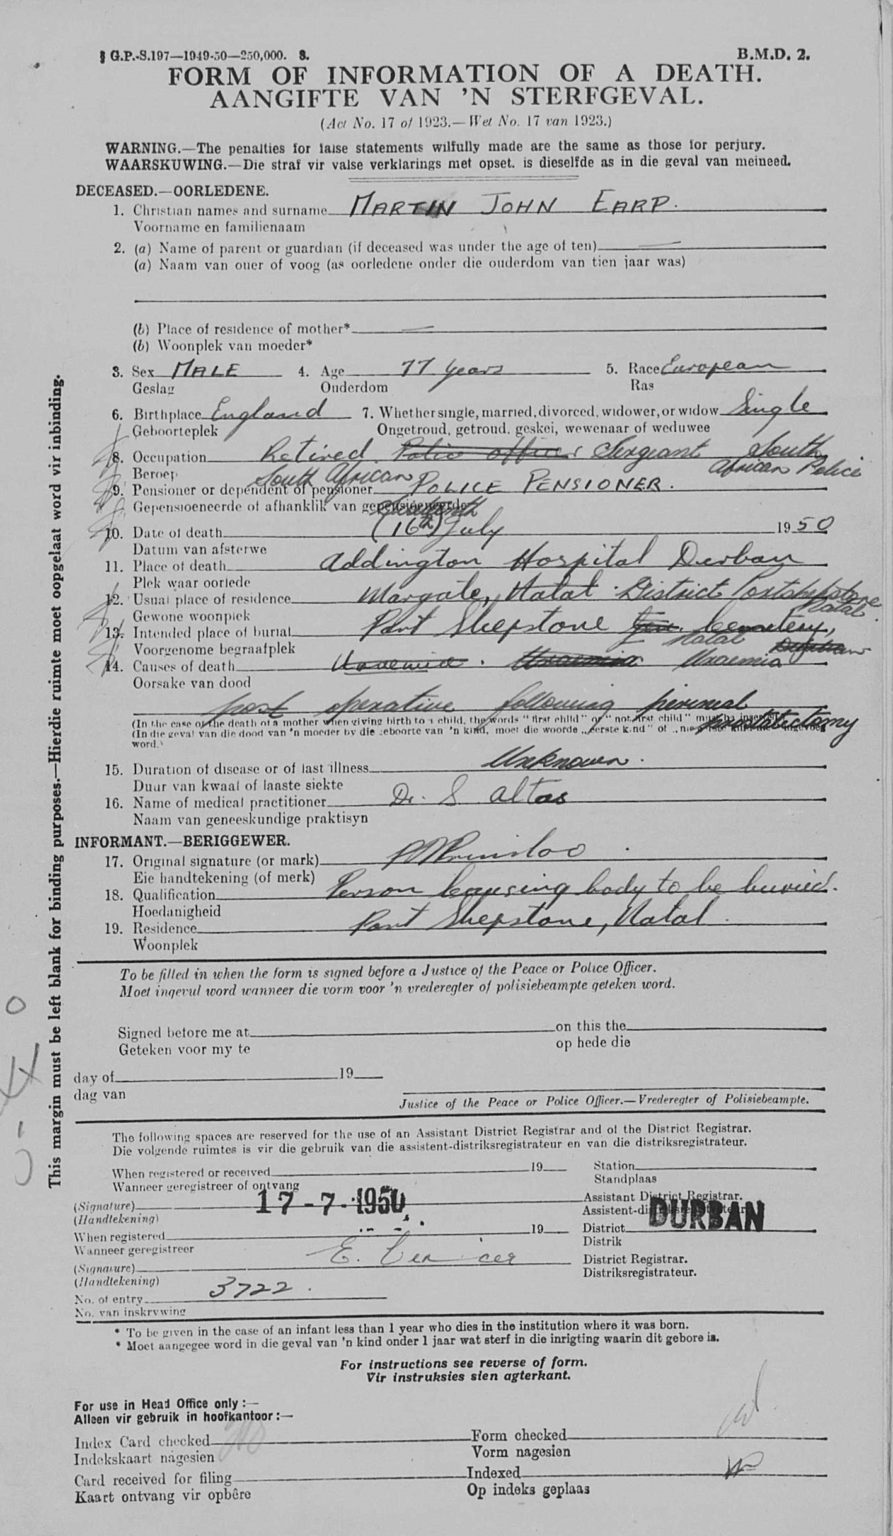 § G.P.-S.197—1949-50—250,000. S.
B.M.D. 2.
FORM OF INFORMATION OF A DEATH.
AANGIFTE VAN 'N STERFGEVAL.
(Act No. 17 of 1923.—Wet No. 17 van 1923.)
WARNING.—The penalties for false statements wilfully made are the same as those for perjury.
WAARSKUWING.—Die straf vir valse verklarings met opset. is dieselfde as in die geval van meineed.
DECEASED.—OORLEDENE.
1. Christian names and surname MARTIN JOHN EARP.
Voornaam en familienaam
2. (a) Name of parent or guardian (if deceased was under the age of ten) —
(a) Naam van ouer of voog (as oorledene onder die ouderdom van tien jaar was)
(b) Place of residence of mother* —
(b) Woonplek van moeder*
3. Sex MALE 4. Age 77 years 5. Race European
Geslag Ouderdom Ras
6. Birthplace England 7. Whether single, married, divorced, widower, or widow Single
Geboorteplek Ongetroud, getroud, geskei, wewenaar of weduwee
8. Occupation Retired Police officer Sergeant South
African Police
Beroep South African
9. Pensioner or dependent of pensioner POLICE PENSIONER.
Gepensioeneerde of afhanklik van gepensioeneerde Sixteenth
10. Date of death (16th) July 1950
Datum van afsterwe
11. Place of death Addington Hospital Durban
Plek waar oorlede
12. Usual place of residence Margate, Natal District Portshepstone
Natal.
Gewone woonplek
13. Intended place of burial Port Shepstone Cemetery,
Natal
Voorgenome begraafplek
14. Causes of death Uraemia
Oorsake van dood
post operative following perineal
prostatectomy
(In the case of the death of a mother when giving birth to a child, the words "first child" or "not first child" must be inserted.)
(In die geval van die dood van 'n moeder by die geboorte van 'n kind, moet die woorde „eerste kind" of
word.)
15. Duration of disease or of last illness Unknown.
Duur van kwaal of laaste siekte
16. Name of medical practitioner Dr. S Altas
Naam van geneeskundige praktisyn
INFORMANT.—BERIGGEWER.
17. Original signature (or mark) Prinsloo
Eie handtekening (of merk)
18. Qualification Person causing body to be buried.
Hoedanigheid
19. Residence Port Shepstone, Natal.
Woonplek
To be filled in when the form is signed before a Justice of the Peace or Police Officer.
Moet ingevul word wanneer die vorm voor 'n vrederegter of polisiebeampte geteken word.
Signed before me at on this the
Geteken voor my te op hede die
day of 19
dag van
Justice of the Peace or Police Officer.—Vrederegter of Polisiebeampte.
The following spaces are reserved for the use of an Assistant District Registrar and of the District Registrar.
Die volgende ruimtes is vir die gebruik van die assistent-distriksregistrateur en van die distriksregistrateur.
When registered or received 19 Station
Wanneer geregistreer of ontvang Standplaas
17-7-1950
(Signature) Assistant District Registrar.
(Handtekening) Assistent-distriksregistrateur.
DURBAN
When registered 19 District
Wanneer geregistreer Distrik
(Signature) E. District Registrar.
(Handtekening) Distriksregistrateur.
No. of entry 3722.
No. van inskrywing
* To be given in the case of an infant less than 1 year who dies in the institution where it was born.
* Moet aangegee word in die geval van 'n kind onder 1 jaar wat sterf in die inrigting waarin dit gebore is.
For instructions see reverse of form.
Vir instruksies sien agterkant.
For use in Head Office only:—
Alleen vir gebruik in hoofkantoor:—
Index Card checked Form checked
Indekskaart nagesien Vorm nagesien
Card received for filing Indexed
Kaart ontvang vir opbêre Op indeks geplaas
This margin must be left blank for binding purposes.—Hierdie ruimte moet oopgelaat word vir inbinding.